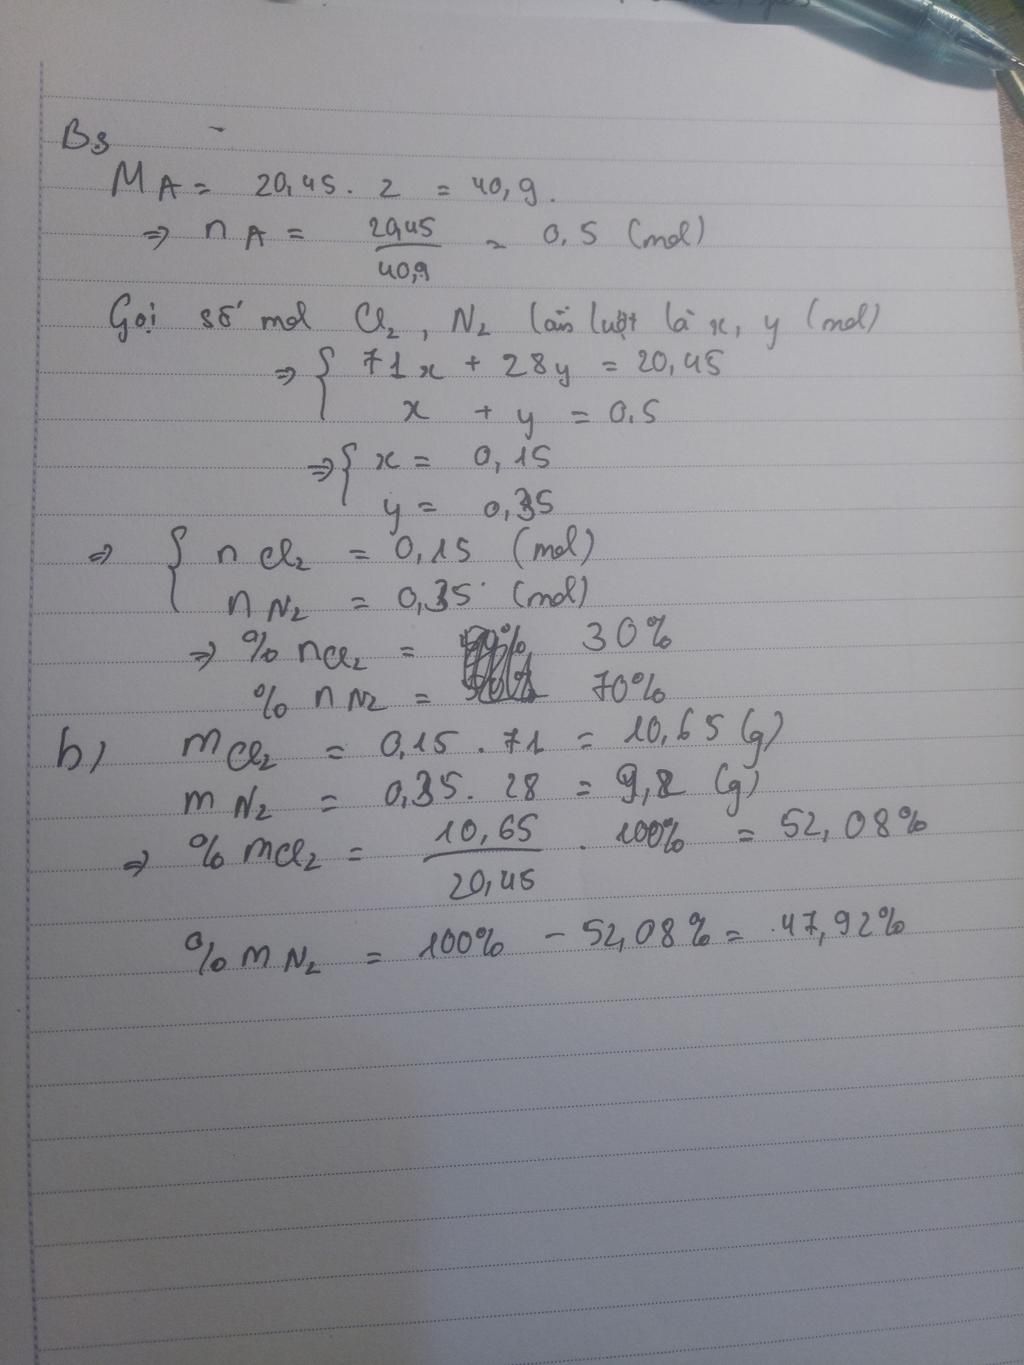 B3
M A = 20,45 . 2 = 40,9.
=> n A = 20,45 / 40,9 = 0,5 (mol)
Gọi số mol Cl2, N2 lần lượt là x, y (mol)
=> { 71x + 28y = 20,45
x + y = 0,5
=> { x = 0,15
y = 0,35
=> { n Cl2 = 0,15 (mol)
n N2 = 0,35 (mol)
=> % n Cl2 = 30%
% n N2 = 70%
b) m Cl2 = 0,15 . 71 = 10,65 (g)
m N2 = 0,35 . 28 = 9,8 (g)
=> % m Cl2 = 10,65 / 20,45 . 100% = 52,08%
% m N2 = 100% - 52,08% = 47,92%